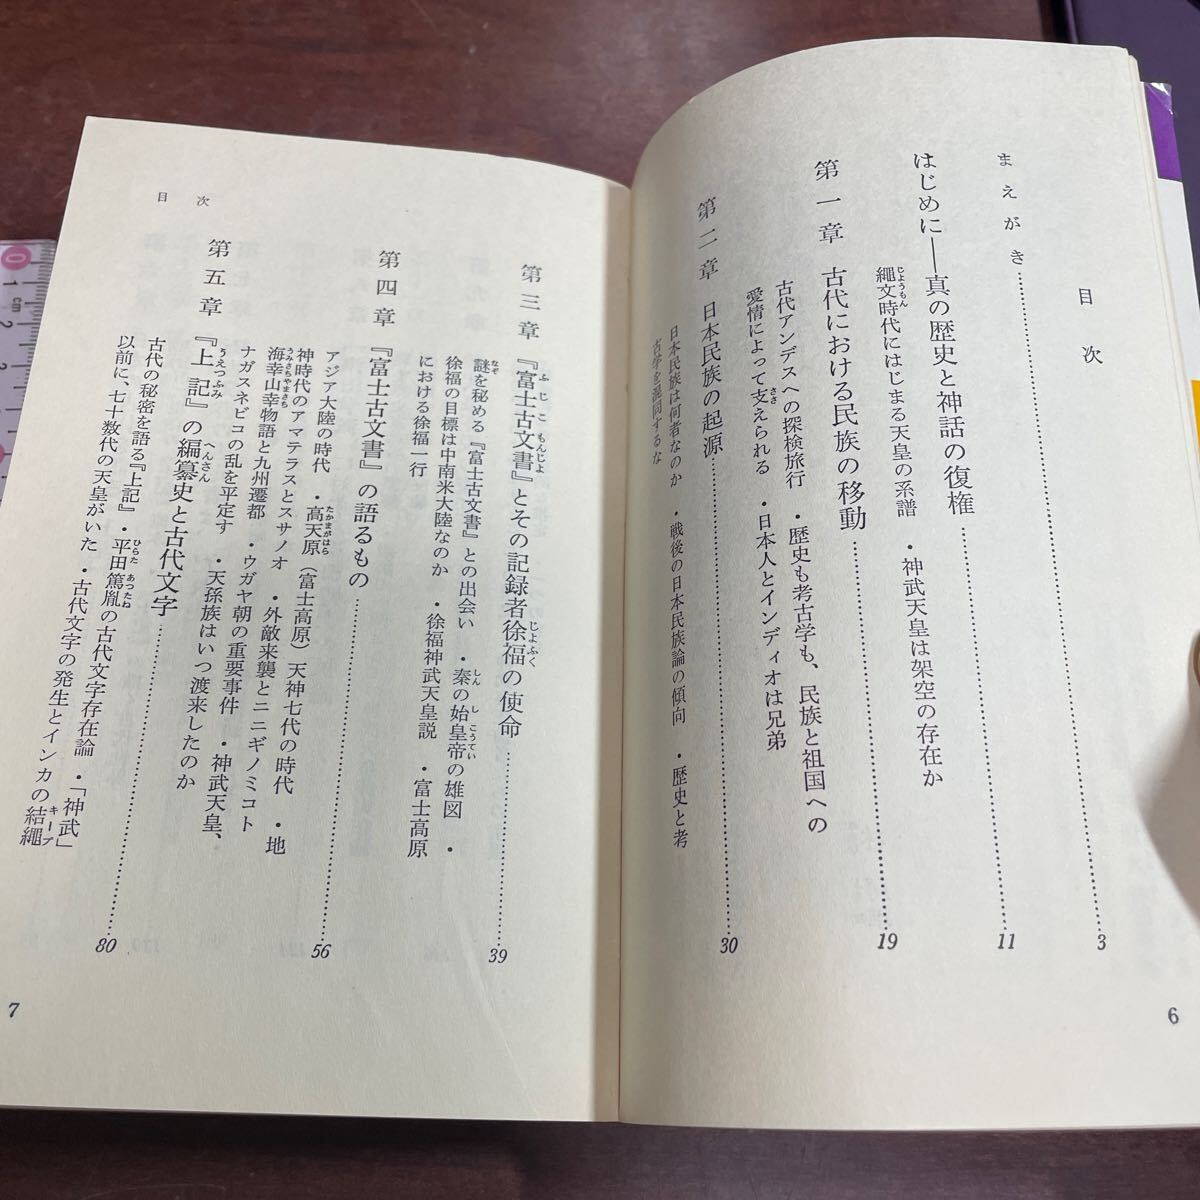 目次
まえがき……3
はじめに――真の歴史と神話の復権……11
縄文時代にはじまる天皇の系譜 ・神武天皇は架空の存在か
第一章 古代における民族の移動……19
古代アンデスへの探検旅行 ・歴史も考古学も、民族と祖国への
愛情によって支えられる ・日本人とインディオは兄弟
第二章 日本民族の起源……30
日本民族は何者なのか ・戦後の日本民族論の傾向 ・歴史と考
古学を混同するな
6
第三章 『富士古文書』とその記録者徐福の使命……39
謎を秘める『富士古文書』との出会い ・秦の始皇帝の雄図 ・
徐福の目標は中南米大陸なのか ・徐福神武天皇説 ・富士高原
における徐福一行
第四章 『富士古文書』の語るもの……56
アジア大陸の時代 ・高天原（富士高原）天神七代の時代 ・地
神時代のアマテラスとスサノオ ・外敵来襲とニニギノミコト
海幸山幸物語と九州遷都 ・ウガヤ朝の重要事件 ・神武天皇、
ナガスネビコの乱を平定す ・天孫族はいつ渡来したのか
第五章 『上記』の編纂史と古代文字……80
古代の秘密を語る『上記』 ・平田篤胤の古代文字存在論 ・「神武」
以前に、七十数代の天皇がいた ・古代文字の発生とインカの結縄
目次
7